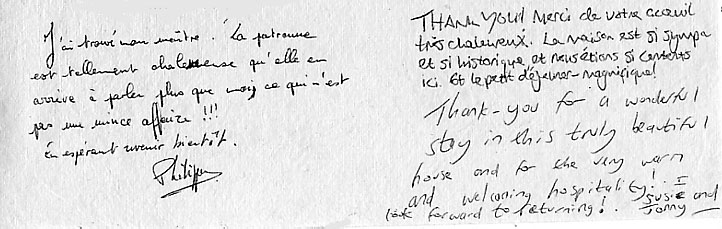 J'ai trouvé mon maître ! La patronne
est tellement chaleureuse qu'elle en
arrive à parler plus que moi, ce qui n'est
pas une mince affaire !!!
En espérant revenir bientôt.
Philippe
THANK YOU! Merci de votre acceuil
très chaleureux. La maison est si sympa
et si historique, et nous étions si contents
ici. Et le petit déjeuner - magnifique!
Thank-you for a wonderful
stay in this truly beautiful
house and for the very warm
and welcoming hospitality! I
look forward to returning! Susie and
Jonny